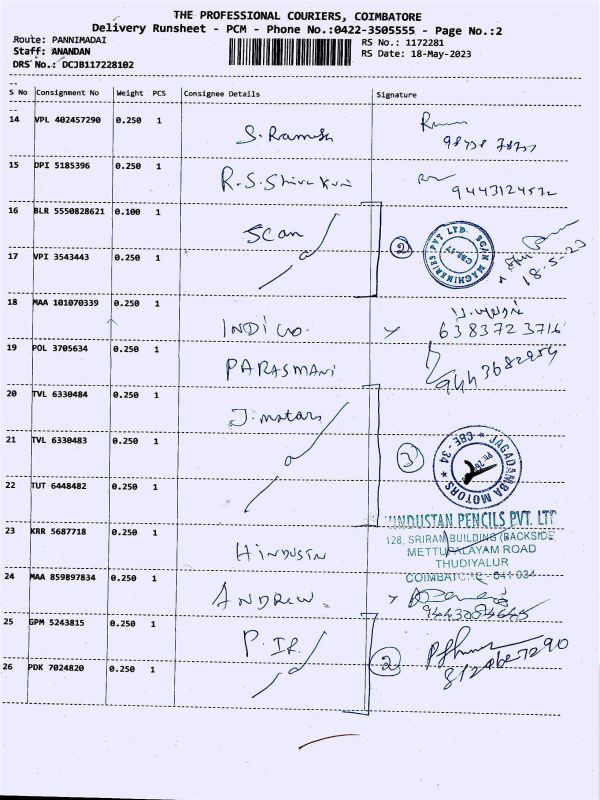 THE PROFESSIONAL COURIERS, COIMBATORE
Delivery Runsheet - PCM - Phone No.:0422-3505555 - Page No.:2
Route: PANNIMADAI
RS No.: 1172281
Staff: ANANDAN
RS Date: 18-May-2023
DRS No.: DCJB117228102
S No Consignment No Weight PCS Consignee Details Signature
14 VPL 402457290 0.250 1 S. Ramesh
15 DPI 5185396 0.250 1 R.S. 9443124532
16 BLR 5550828621 0.100 1 Scan 2
SCAN MACHINERIES PVT LTD. CBE-17
18-5-23
17 VPI 3543443 0.250 1
18 MAA 101070339 0.250 1 INDICO. 6383723716
19 POL 3705634 0.250 1 PARASMANI
20 TVL 6330484 0.250 1 J. motors
21 TVL 6330483 0.250 1 3
JAGADAMBA MOTORS ★ CBE - 34 ★
22 TUT 6448482 0.250 1
HINDUSTAN PENCILS PVT. LTD
128, SRIRAM BUILDING (BACKSIDE)
METTUPALAYAM ROAD
THUDIYALUR
COIMBATORE - 641 034
23 KRR 5687718 0.250 1 HINDUSTN
24 MAA 859897834 0.250 1 ANDREW
25 GPM 5243815 0.250 1 P. IR
26 PDK 7024820 0.250 1 2